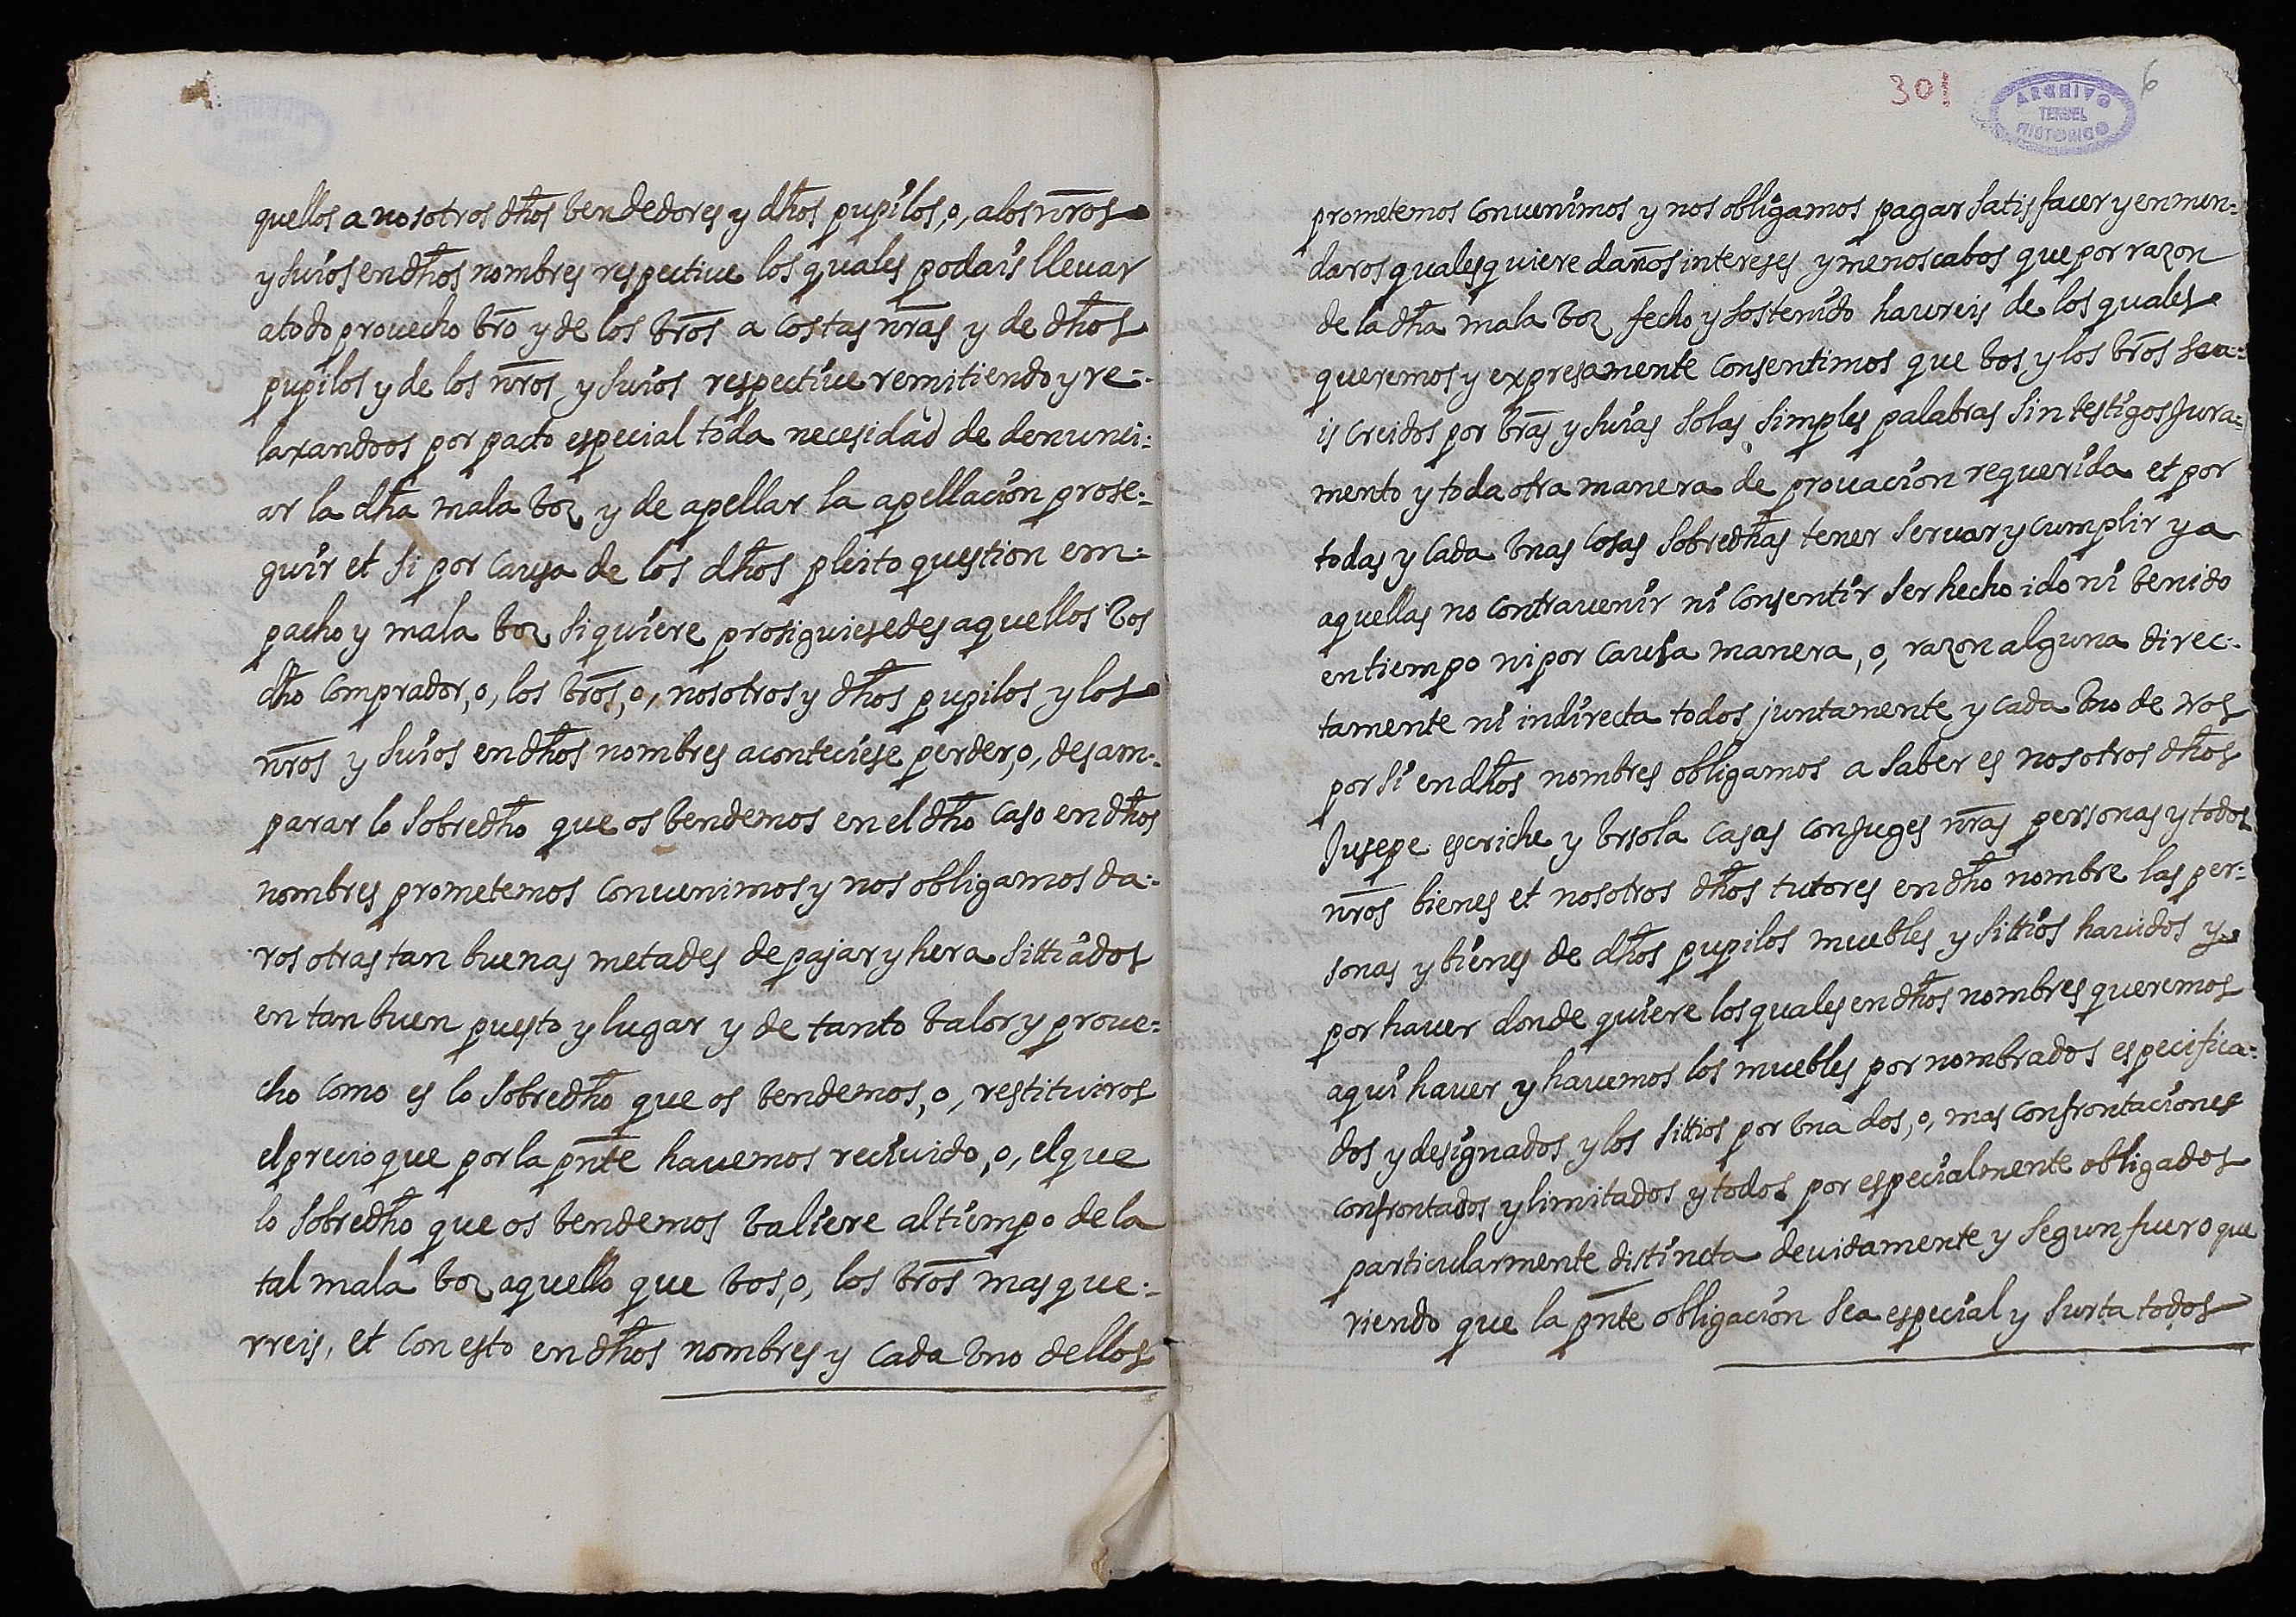 quellos a nosotros dhos bendedores y dhos pupilos, o, a los nros
y suios en dhos nombres respectiue los quales podais lleuar
a todo prouecho bro y de los bros a costas nras y de dhos
pupilos y de los nros y suios respectiue remitiendo y re-
laxandoos por pacto especial toda necesidad de denunci-
ar la dha mala boz y de apellar la apellacion prose-
guir et si por causa de los dhos pleito question em-
pacho y mala boz siquiere prosiguiesedes aquellos Vos
dho comprador, o, los bros, o, nosotros y dhos pupilos y los
nros y suios en dhos nombres aconteciese perder, o, desam-
parar lo sobredho que os bendemos en el dho caso en dhos
nombres prometemos conuenimos y nos obligamos da-
ros otras tan buenas metades de pajar y hera sittiados
en tan buen puesto y lugar y de tanto balor y proue-
cho como es lo sobredho que os bendemos, o, restituiros
el precio que por la pnte hauemos reciuido, o, el que
lo sobredho que os bendemos baliere al tiempo de la
tal mala boz aquello que bos, o, los bros mas que-
rreis, et con esto en dhos nombres y cada bno dellos
301
6
ARCHIVO
TERUEL
HISTORICO
prometemos conuenimos y nos obligamos pagar satisfacer y enmen-
daros qualesquiere daños intereses y menoscabos que por razon
de la dha mala boz fecho y sostenido haureis de los quales
queremos y expresamente consentimos que bos y los bros sea-
is creidos por bras y suias solas simples palabras sin testigos jura-
mento y toda otra manera de prouacion requerida et por
todas y cada bnas cosas sobredhas tener seruar y cumplir y a
aquellas no contrauenir ni consentir ser hecho ido ni benido
en tiempo ni por causa manera, o, razon alguna direc-
tamente ni indirecta todos juntamente y cada bno de nos
por si en dhos nombres obligamos a saber es nosotros dhos
Jusepe escriche y brsola casas conjuges nras personas y todos
nros bienes et nosotros dhos tutores en dho nombre las per-
sonas y bienes de dhos pupilos muebles y sittios hauidos y
por hauer donde quiere los quales en dhos nombres queremos
aqui hauer y hauemos los muebles por nombrados especifica-
dos y designados y los sittios por bna dos, o, mas confrontaciones
confrontados y limitados y todos por especialmente obligados
particularmente distincta deuidamente y segun fuero que
riendo que la pnte obligacion sea especial y surta todos